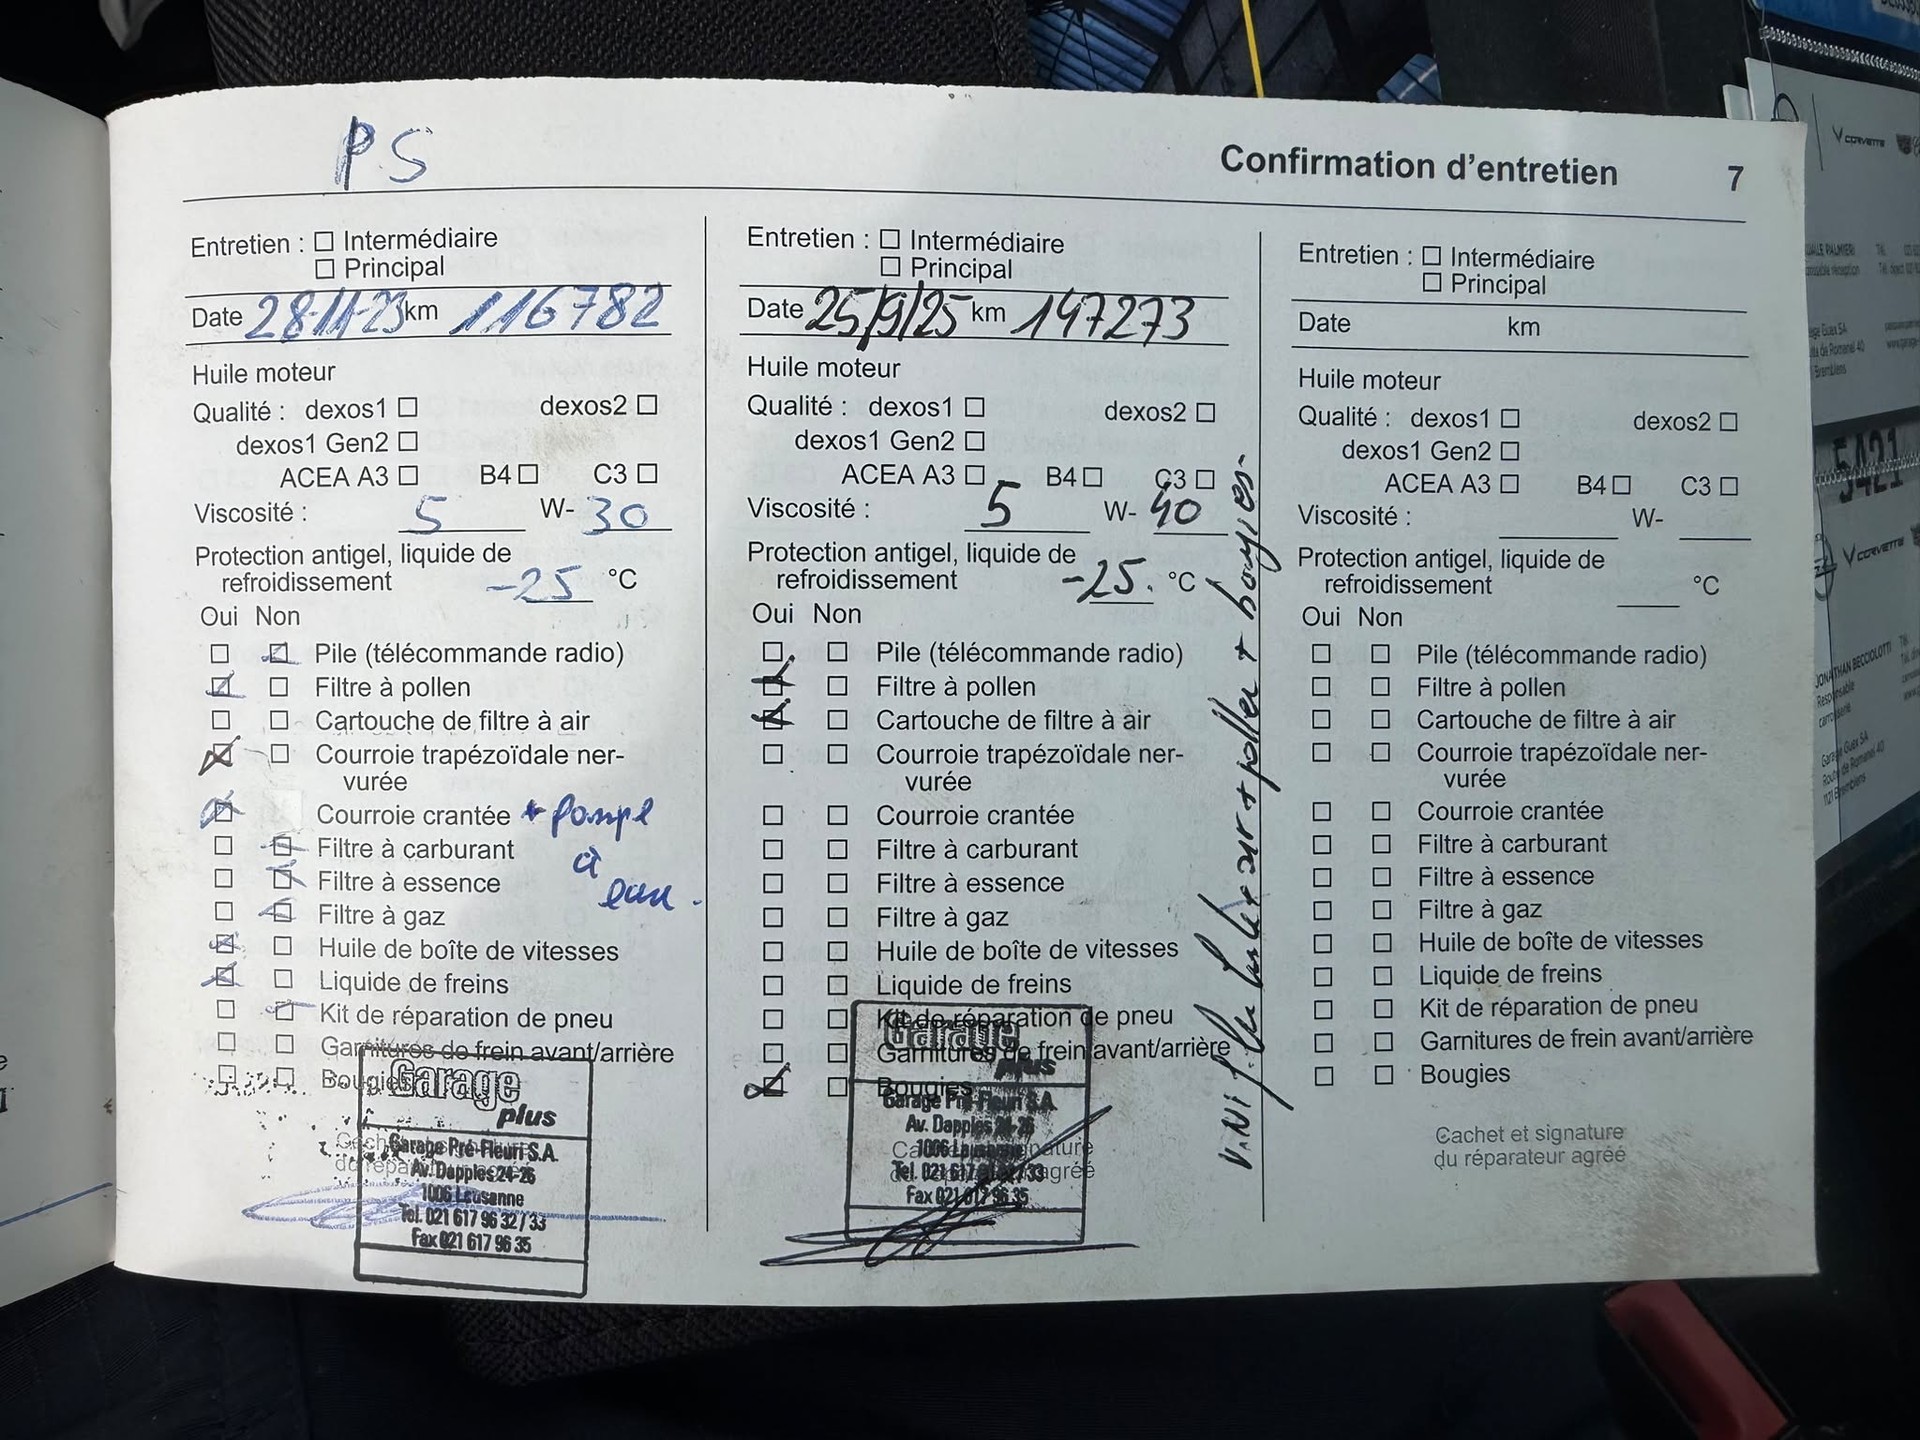 PS
Confirmation d'entretien 7
Entretien : ☐ Intermédiaire
☐ Principal
Date 28-11-23 km 116782
Huile moteur
Qualité : dexos1 ☐ dexos2 ☐
dexos1 Gen2 ☐
ACEA A3 ☐ B4 ☐ C3 ☐
Viscosité : 5 W- 30
Protection antigel, liquide de
refroidissement -25 °C
Oui Non
Pile (télécommande radio)
Filtre à pollen
Cartouche de filtre à air
Courroie trapézoïdale ner-
vurée
Courroie crantée + pompe
à
eau.
Filtre à carburant
Filtre à essence
Filtre à gaz
Huile de boîte de vitesses
Liquide de freins
Kit de réparation de pneu
Garnitures de frein avant/arrière
Bougies
Garage
plus
Garage Pré-Fleuri S.A.
Av. Dapples 24-26
1006 Lausanne
Tel. 021 617 96 32 / 33
Fax 021 617 96 35
Entretien : ☐ Intermédiaire
☐ Principal
Date 25/9/25 km 147273
Huile moteur
Qualité : dexos1 ☐ dexos2 ☐
dexos1 Gen2 ☐
ACEA A3 ☐ B4 ☐ C3 ☐
Viscosité : 5 W- 40
Protection antigel, liquide de
refroidissement -25. °C
Oui Non
Pile (télécommande radio)
Filtre à pollen
Cartouche de filtre à air
Courroie trapézoïdale ner-
vurée
Courroie crantée
Filtre à carburant
Filtre à essence
Filtre à gaz
Huile de boîte de vitesses
Liquide de freins
Kit de réparation de pneu
Garnitures de frein avant/arrière
Bougies
Garage
plus
Garage Pré-Fleuri S.A.
Av. Dapples 24-26
1006 Lausanne
Tel. 021 617 96 32/33
Fax 021 617 96 35
+ air + pollen + bougies-
Entretien : ☐ Intermédiaire
☐ Principal
Date km
Huile moteur
Qualité : dexos1 ☐ dexos2 ☐
dexos1 Gen2 ☐
ACEA A3 ☐ B4 ☐ C3 ☐
Viscosité : W-
Protection antigel, liquide de
refroidissement °C
Oui Non
Pile (télécommande radio)
Filtre à pollen
Cartouche de filtre à air
Courroie trapézoïdale ner-
vurée
Courroie crantée
Filtre à carburant
Filtre à essence
Filtre à gaz
Huile de boîte de vitesses
Liquide de freins
Kit de réparation de pneu
Garnitures de frein avant/arrière
Bougies
Cachet et signature
du réparateur agréé
CORVETTE
5421
CORVETTE
JONATHAN BECCIOLOTTI
Garage Guex SA
Route de Romanel 40